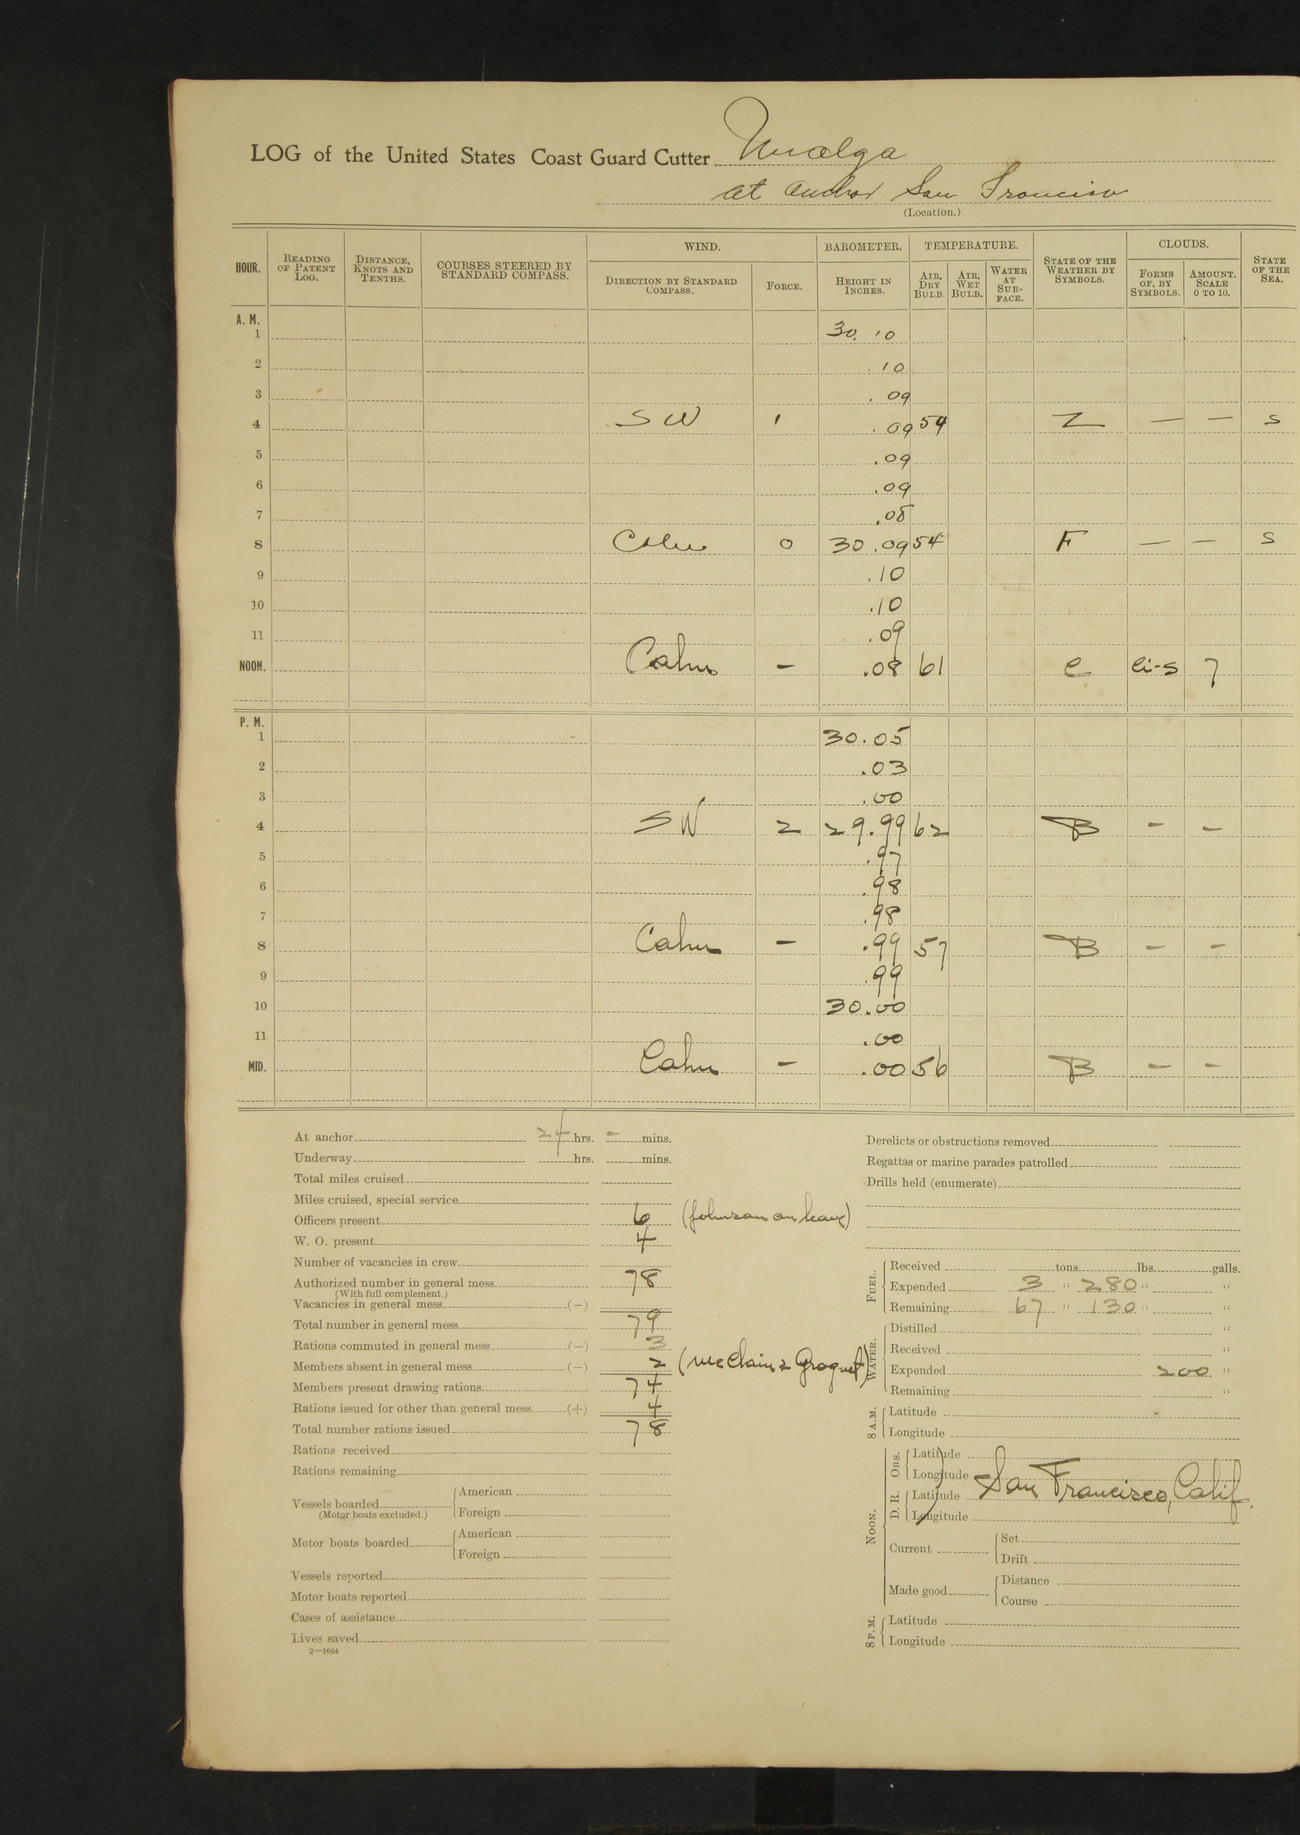 LOG of the United States Coast Guard Cutter Unalga
at anchor San Francisco
(Location.)
HOUR. READING OF PATENT LOG. DISTANCE, KNOTS AND TENTHS. COURSES STEERED BY STANDARD COMPASS. WIND. DIRECTION BY STANDARD COMPASS. FORCE. BAROMETER. HEIGHT IN INCHES. TEMPERATURE. AIR, DRY BULB. AIR, WET BULB. WATER AT SURFACE. STATE OF THE WEATHER BY SYMBOLS. CLOUDS. FORMS OF, BY SYMBOLS. AMOUNT. SCALE 0 TO 10. STATE OF THE SEA.
A. M.
1 30.10
2 .10
3 .09
4 SW 1 .09 54 Z — — S
5 .09
6 .09
7 .08
8 Calm 0 30.09 54 F — — S
9 .10
10 .10
11 .09
NOON. Calm - .08 61 C Ci-S 7
P. M.
1 30.05
2 .03
3 .00
4 SW 2 29.99 62 B - -
5 .97
6 .98
7 .98
8 Calm - .99 57 B - -
9 .99
10 30.00
11 .00
MID. Calm - .00 56 B - -
At anchor 24 hrs. - mins.
Underway hrs. mins.
Total miles cruised
Miles cruised, special service
Officers present 6 (Johnson on leave)
W. O. present 4
Number of vacancies in crew
Authorized number in general mess 78
(With full complement.)
Vacancies in general mess (—)
Total number in general mess 79
Rations commuted in general mess (—) 3
Members absent in general mess (—) 2 (McClain &
Members present drawing rations 74
Rations issued for other than general mess (+) 4
Total number rations issued 78
Rations received
Rations remaining
Vessels boarded American
(Motor boats excluded.) Foreign
Motor boats boarded American
Foreign
Vessels reported
Motor boats reported
Cases of assistance
Lives saved
2—1664
Derelicts or obstructions removed
Regattas or marine parades patrolled
Drills held (enumerate)
FUEL. Received tons lbs galls.
Expended 3 " 280 " "
Remaining 67 " 130 " "
WATER. Distilled "
Received "
Expended 200 "
Remaining "
8 A.M. Latitude
Longitude
NOON. Obs. Latitude
Longitude
D. R. Latitude San Francisco, Calif.
Longitude
Current Set
Drift
Made good Distance
Course
8 P.M. Latitude
Longitude